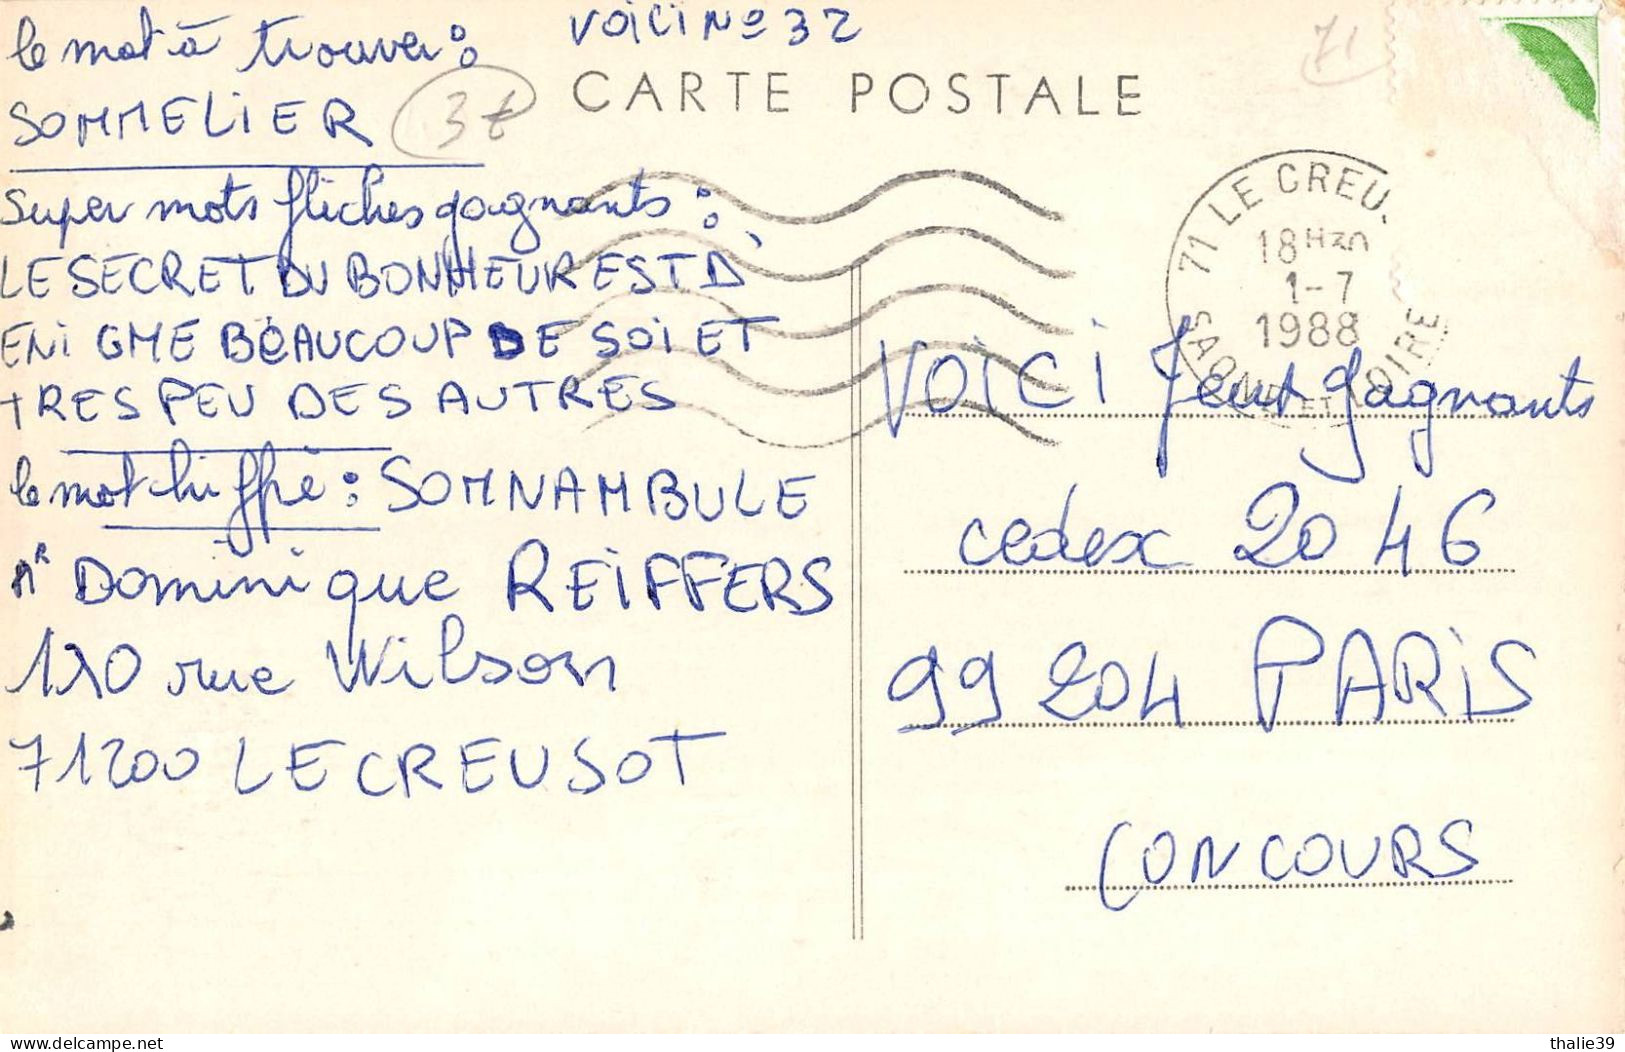 VOiCi No 32
le mot à trouver :
SOMMELIER
3€
CARTE POSTALE
71
71 LE CREU
18H30
1-7
1988
SAONE ET LOIRE
super mots flêches gagnants :
LE SECRET DU BONHEUR EST D'
ENiGME BEAUCOUP DE SOi ET
TRES PEU DES AUTRES
le mot chiffré : SOMNAMBULE
Mr Dominique REiFFERS
110 rue Wilson
71200 LE CREUSOT
VOiCi Jeux gagnants
cedex 2046
99204 PARiS
CONCOURS
thalie39